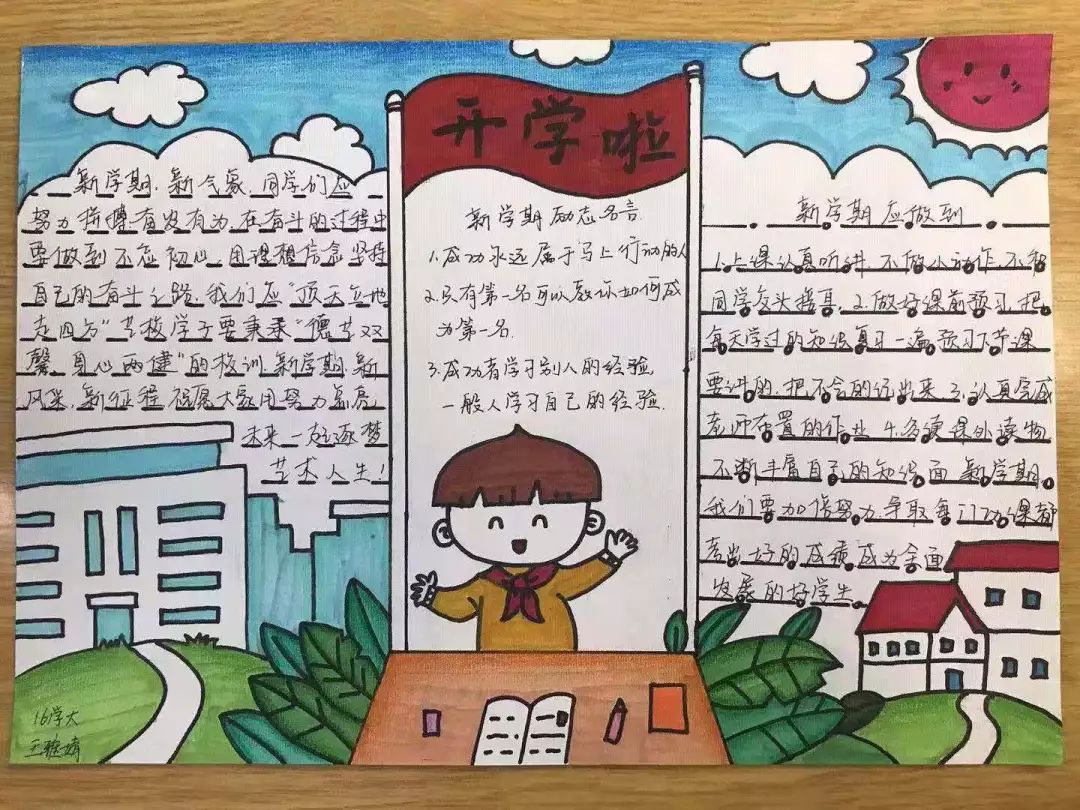 开学啦
新学期.新气象.同学们应
努力拼搏.奋发有为.在奋斗的过程中
要做到不忘初心.用理想信念坚持
自己的奋斗之路.我们应“顶天立地
走四方”艺校学子要秉承“德艺双
馨.身心两健”的校训.新学期.新
风采.新征程.祝愿大家用努力点亮
未来一起逐梦
艺术人生!
16学大
新学期励志名言.
1.成功永远属于马上行动的人
2.只有第一名可以教你如何成
为第一名.
3.成功者学习别人的经验
一般人学习自己的经验.
新学期应做到
1.上课认真听讲.不做小动作.不和
同学交头接耳.2.做好课前预习.把
每天学过的知识复习一遍.预习下节课
要讲的.把不会的记出来.3.认真完成
老师布置的作业.4.多读课外读物
不断丰富自己的知识面.新学期.
我们要加倍努力.争取每门功课都
考出好的成绩.成为全面
发展的好学生.